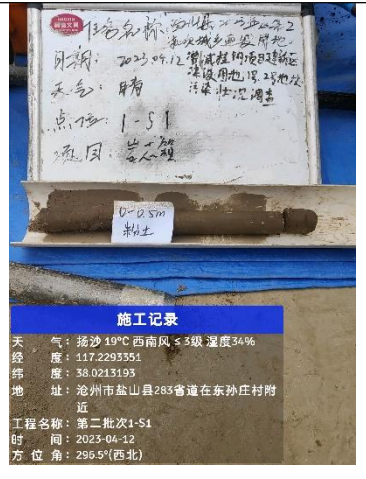 任务名称：盐山县2023年以第2
批次城乡建设用地
日期：2023.04.12
天气：晴
点位：1-S1
0-0.5m
粉土
施工记录
天 气：扬沙 19℃ 西南风 ≤ 3级 湿度34%
经 度：117.2293351
纬 度：38.0213193
地 址：沧州市盐山县283省道在东孙庄村附
近
工程名称：第二批次1-S1
时 间：2023-04-12
方 位 角：296.5°(西北)